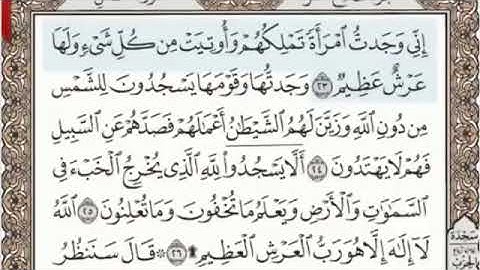 إِنِّي وَجَدتُّ ٱمۡرَأَةٗ تَمۡلِكُهُمۡ وَأُوتِيَتۡ مِن كُلِّ شَيۡءٖ وَلَهَا
عَرۡشٌ عَظِيمٞ ٢٣ وَجَدتُّهَا وَقَوۡمَهَا يَسۡجُدُونَ لِلشَّمۡسِ
مِن دُونِ ٱللَّهِ وَزَيَّنَ لَهُمُ ٱلشَّيۡطَٰنُ أَعۡمَٰلَهُمۡ فَصَدَّهُمۡ عَنِ ٱلسَّبِيلِ
فَهُمۡ لَا يَهۡتَدُونَ ٢٤ أَلَّاۤ يَسۡجُدُواْ لِلَّهِ ٱلَّذِي يُخۡرِجُ ٱلۡخَبۡءَ فِي
ٱلسَّمَٰوَٰتِ وَٱلۡأَرۡضِ وَيَعۡلَمُ مَا تُخۡفُونَ وَمَا تُعۡلِنُونَ ٢٥ ٱللَّهُ
لَآ إِلَٰهَ إِلَّا هُوَ رَبُّ ٱلۡعَرۡشِ ٱلۡعَظِيمِ۩ ٢٦ ۞ قَالَ سَنَنظُرُ
سَجْدَة